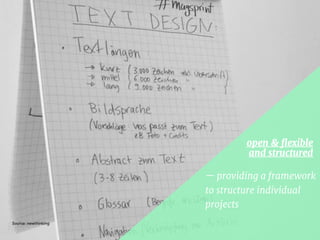 #magsprint
TEXT DESIGN:
• Textlängen
→ kurz (3.000 Zeichen
→ mittel (6.000 Zeichen "
→ lang (9.000 Zeichen "
• Bildsprache
(Vorschläge was passt zum Text)
zB Foto +
• Abstract zum Text
(3-8 Zeilen)
• Glossar
• Navigation
open & flexible
and structured
— providing a framework
to structure individual
projects
Source: newthinking